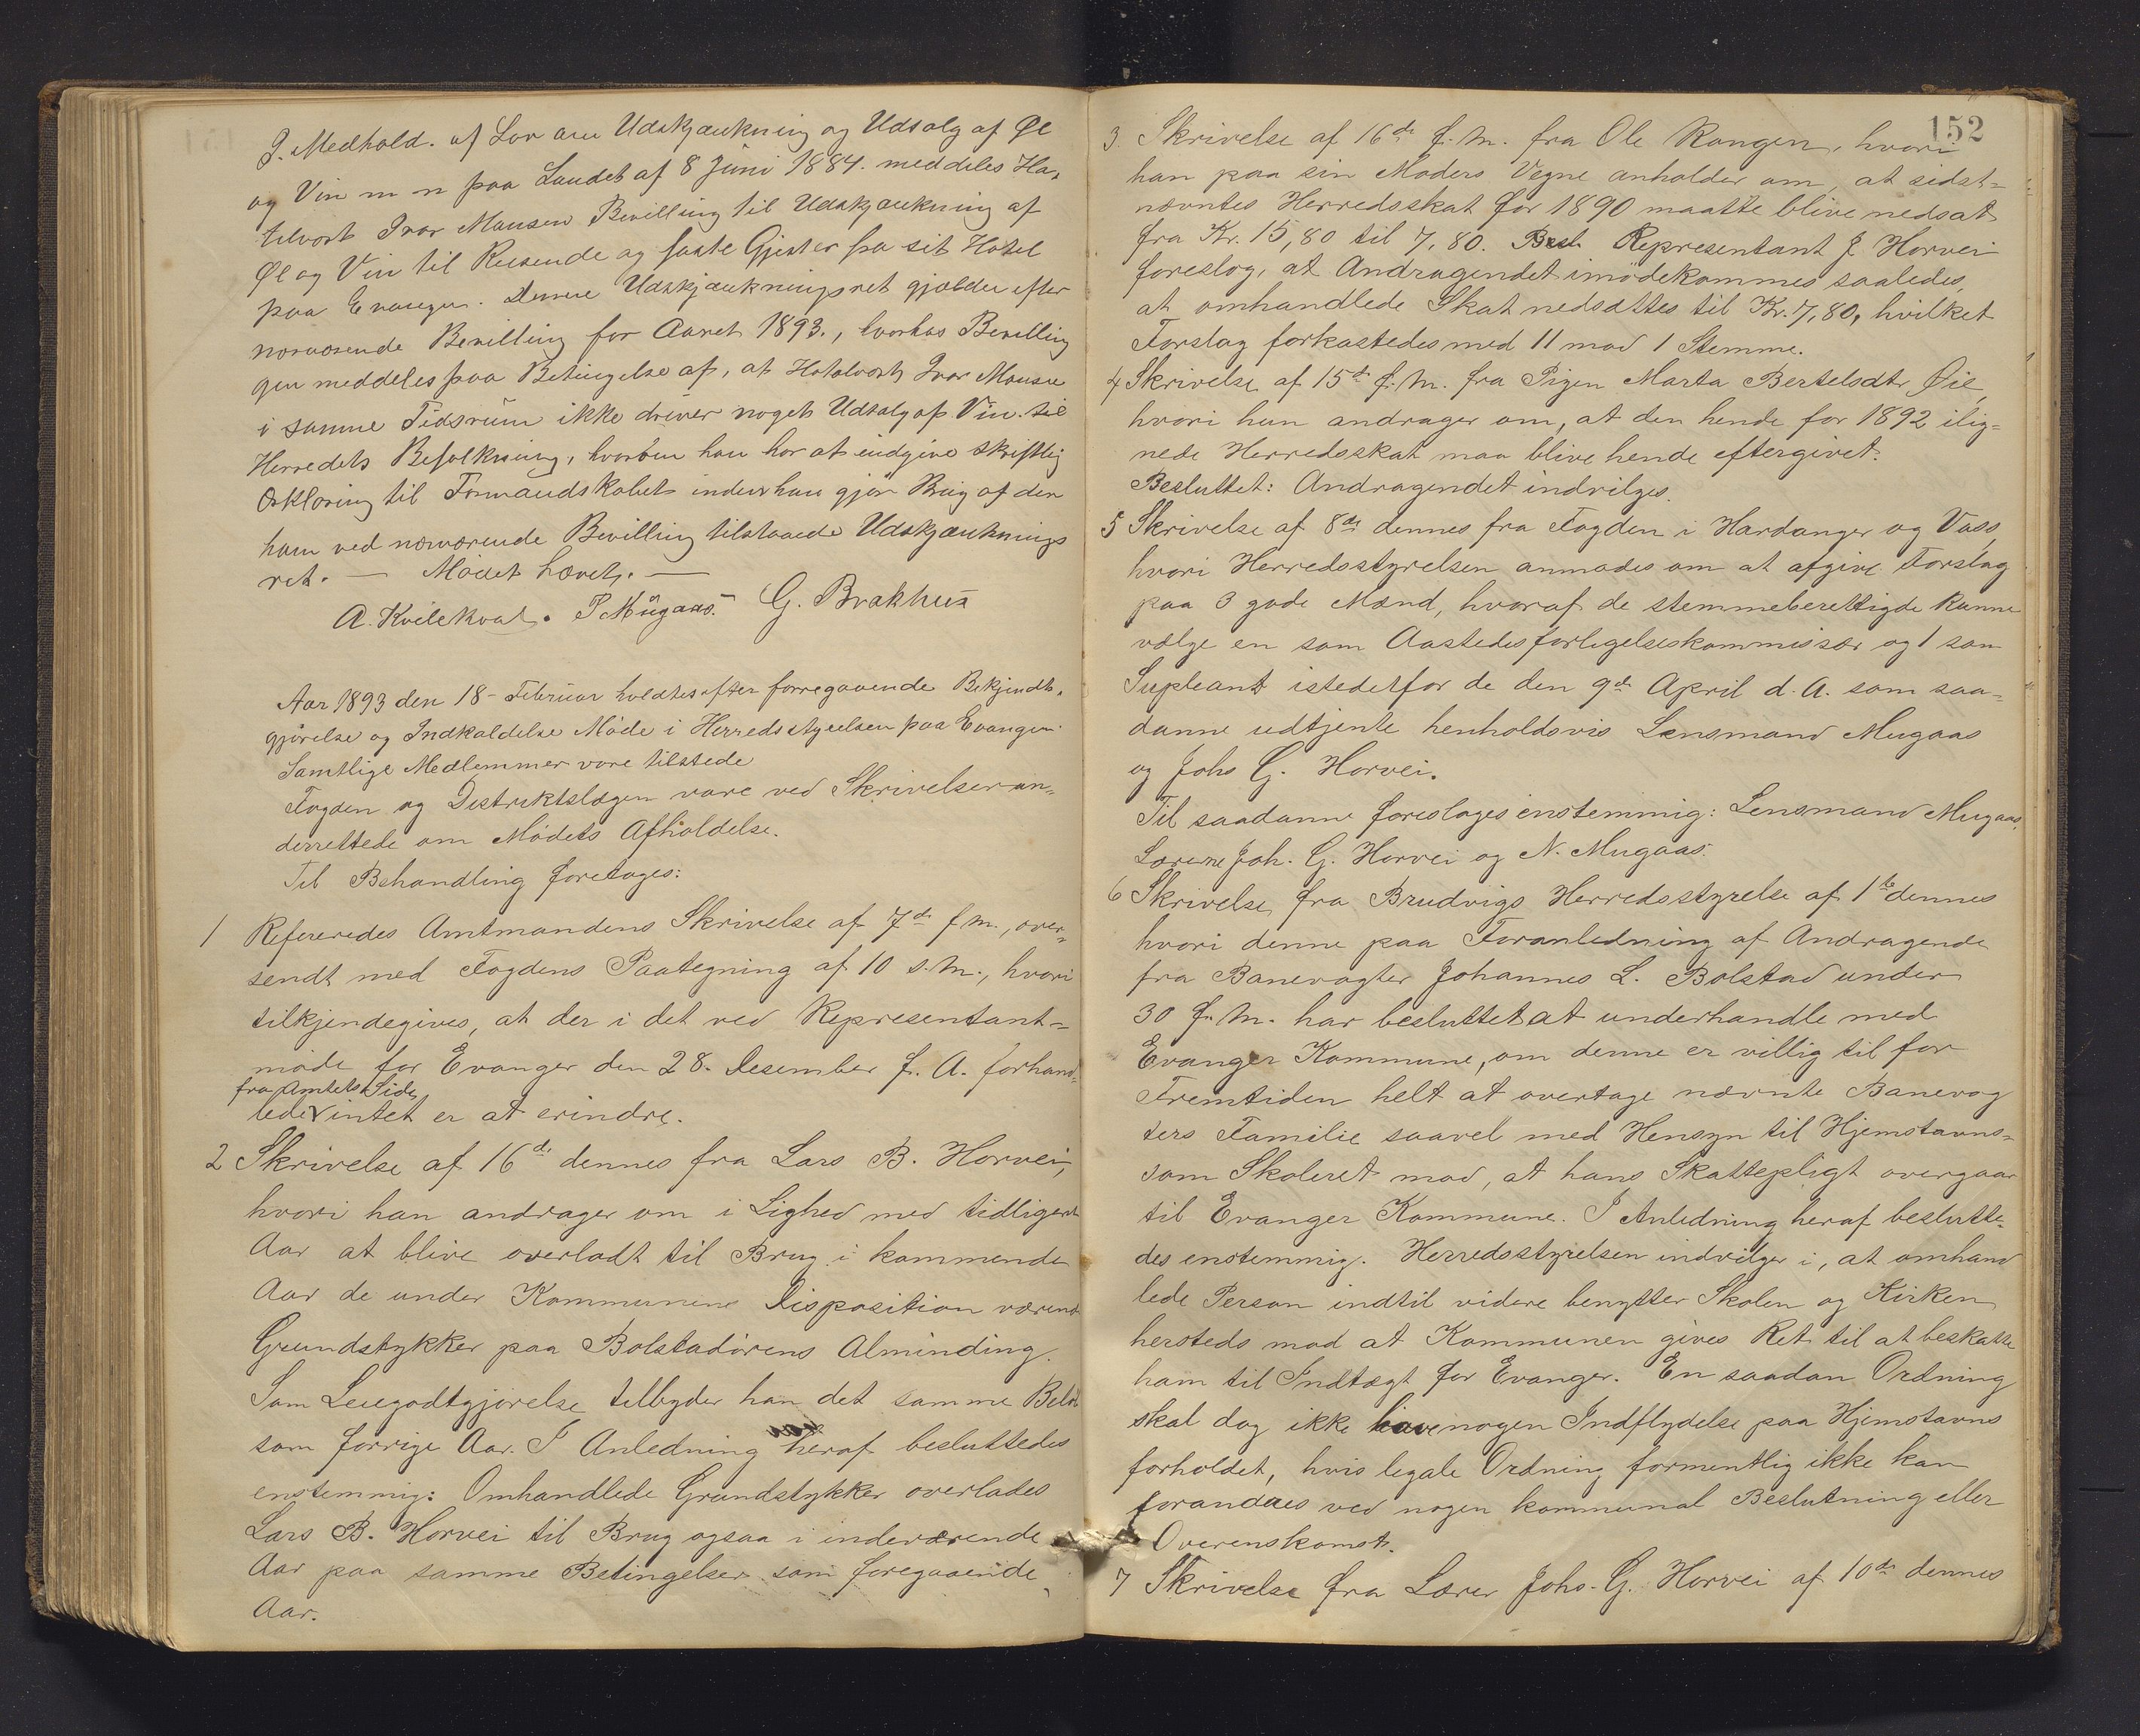 I. Medhold. af Lov om Udskjænkning og Udsalg af Øl
og Vin m m paa Landet af 8 Juni 1884. meddeles Ho,
telvert Ivar Monsen Bevilling til Udskjænkning af
Øl og Vin til Reisende og faste Gjester paa sit Hotel
paa Evanger. Denne Udskjænkningsret gjælder efter
nærværende Bevilling for Aaret 1893., hvorhos Bevilling
gen meddeles paa Betingelse af, at Hotelvert Ivar Monsen
i samme Tidsrum ikke driver noget Udsalg af Vin til
Herredets Befolkning, hvorom han har at indgive skriftlig
Erklæring til Formandskabet inden han gjør Brug af den
ham ved nærværende Bevilling tilstaaede Udskjænknings
ret. — Mödet hævet. —
A. Kvilekval. P Mügaas. G. Brakhus
Aar 1893 den 18- Februar holdtes efter forregaaende Bekjendt,
gjörelse og Indkaldelse Möde i Herredsstyrelsen paa Evanger.
Samtlige Medlemmer vare tilstede
Fogden og Distriktslægen vare ved Skrivelser un=
derrettede om Mödets Afholdelse.
Til Behandling foretoges:
1 Refereredes Amtmandens Skrivelse af 7de f. m., over=
sendt med Fogdens Paategning af 10 s. m., hvori
tilkjendegives, at der i det ved Representant=
möde for Evanger den 28. Desember f. A. forhand=
fra Amtets Side
lede intet er at erindre.
2 Skrivelse af 16de dennes fra Lars B. Horvei,
hvori han andrager om i Lighed med tidligere
Aar at blive overladt til Brug i kommende
Aar de under Kommunens Disposition værende
Grundstykker paa Bolstadörens Alminding.
Som Leiegodtgjörelse tilbyder han det samme Belöb
som forrige Aar. I Anledning heraf besluttedes
enstemmig: Omhandlede Grundstykker overlades
Lars B. Horvei til Brug ogsaa i indeværende
Aar paa samme Betingelser som foregaaende
Aar.
152
3 Skrivelse af 16de f. m. fra Ole Rongen, hvori
han paa sin Moders Vegne anholder om, at sidst=
nævntes Herredsskat for 1890 maatte blive nedsat
fra Kr. 15,80 til 7,80. Besl. Representant J. Horvei
foreslog, at Andragendet imödekommes saaledes,
at omhandlede Skat nedsættes til Kr. 7,80, hvilket
Forslag forkastedes med 11 mod 1 Stemme.
4 Skrivelse af 15de f. m. fra Pigen Marta Bertelsdtr Øie,
hvori hun andrager om, at den hende for 1892 ilig=
nede Herredsskat maa blive hende eftergivet.
Besluttet: Andragendet indvilges.
5 Skrivelse af 8de dennes fra Fogden i Hardanger og Voss,
hvori Herredsstyrelsen anmodes om at afgive Forslag
paa 3 gode Mænd, hvoraf de stemmeberettigde kunne
vælge en som Aastedsforligelseskommissær og 1 som
Supleant istedetfor de den 9de April d. A. som saa=
danne udtjente henholdsvis Lensmand Mugaas
og Johs G. Horvei.
Til saadanne foreslages enstemmig: Lensmand Mugaas,
Lærerne Joh. G. Horvei og N. Mugaas.
6 Skrivelse fra Brudvigs Herredsstyrelse af 1ste dennes
hvori denne paa Foranledning af Andragende
fra Banevogter Johannes L. Bolstad under
30 f. m. har besluttet at underhandle med
Evanger Kommune, om denne er villig til for
Fremtiden helt at overtage nævnte Banevog
ters Familie saavel med Hensyn til Hjemstavns=
som Skoleret mod, at hans Skattepligt overgaar
til Evanger Kommune. I Anledning heraf beslutte=
des enstemmig. Herredsstyrelsen indvilger i, at omhand
lede Person indtil videre benytter Skolen og Kirken
hersteds mod at Kommunen gives Ret til at beskatte
ham til Indtægt for Evanger. En saadan Ordning
skal dog ikke have nogen Indflydelse paa Hjemstavns
forholdet, hvis legale Ordning formentlig ikke kan
forandres ved nogen kommunal Beslutning eller
Overenskomst.
7 Skrivelse fra Lærer Johs. G. Horvei af 10de dennes